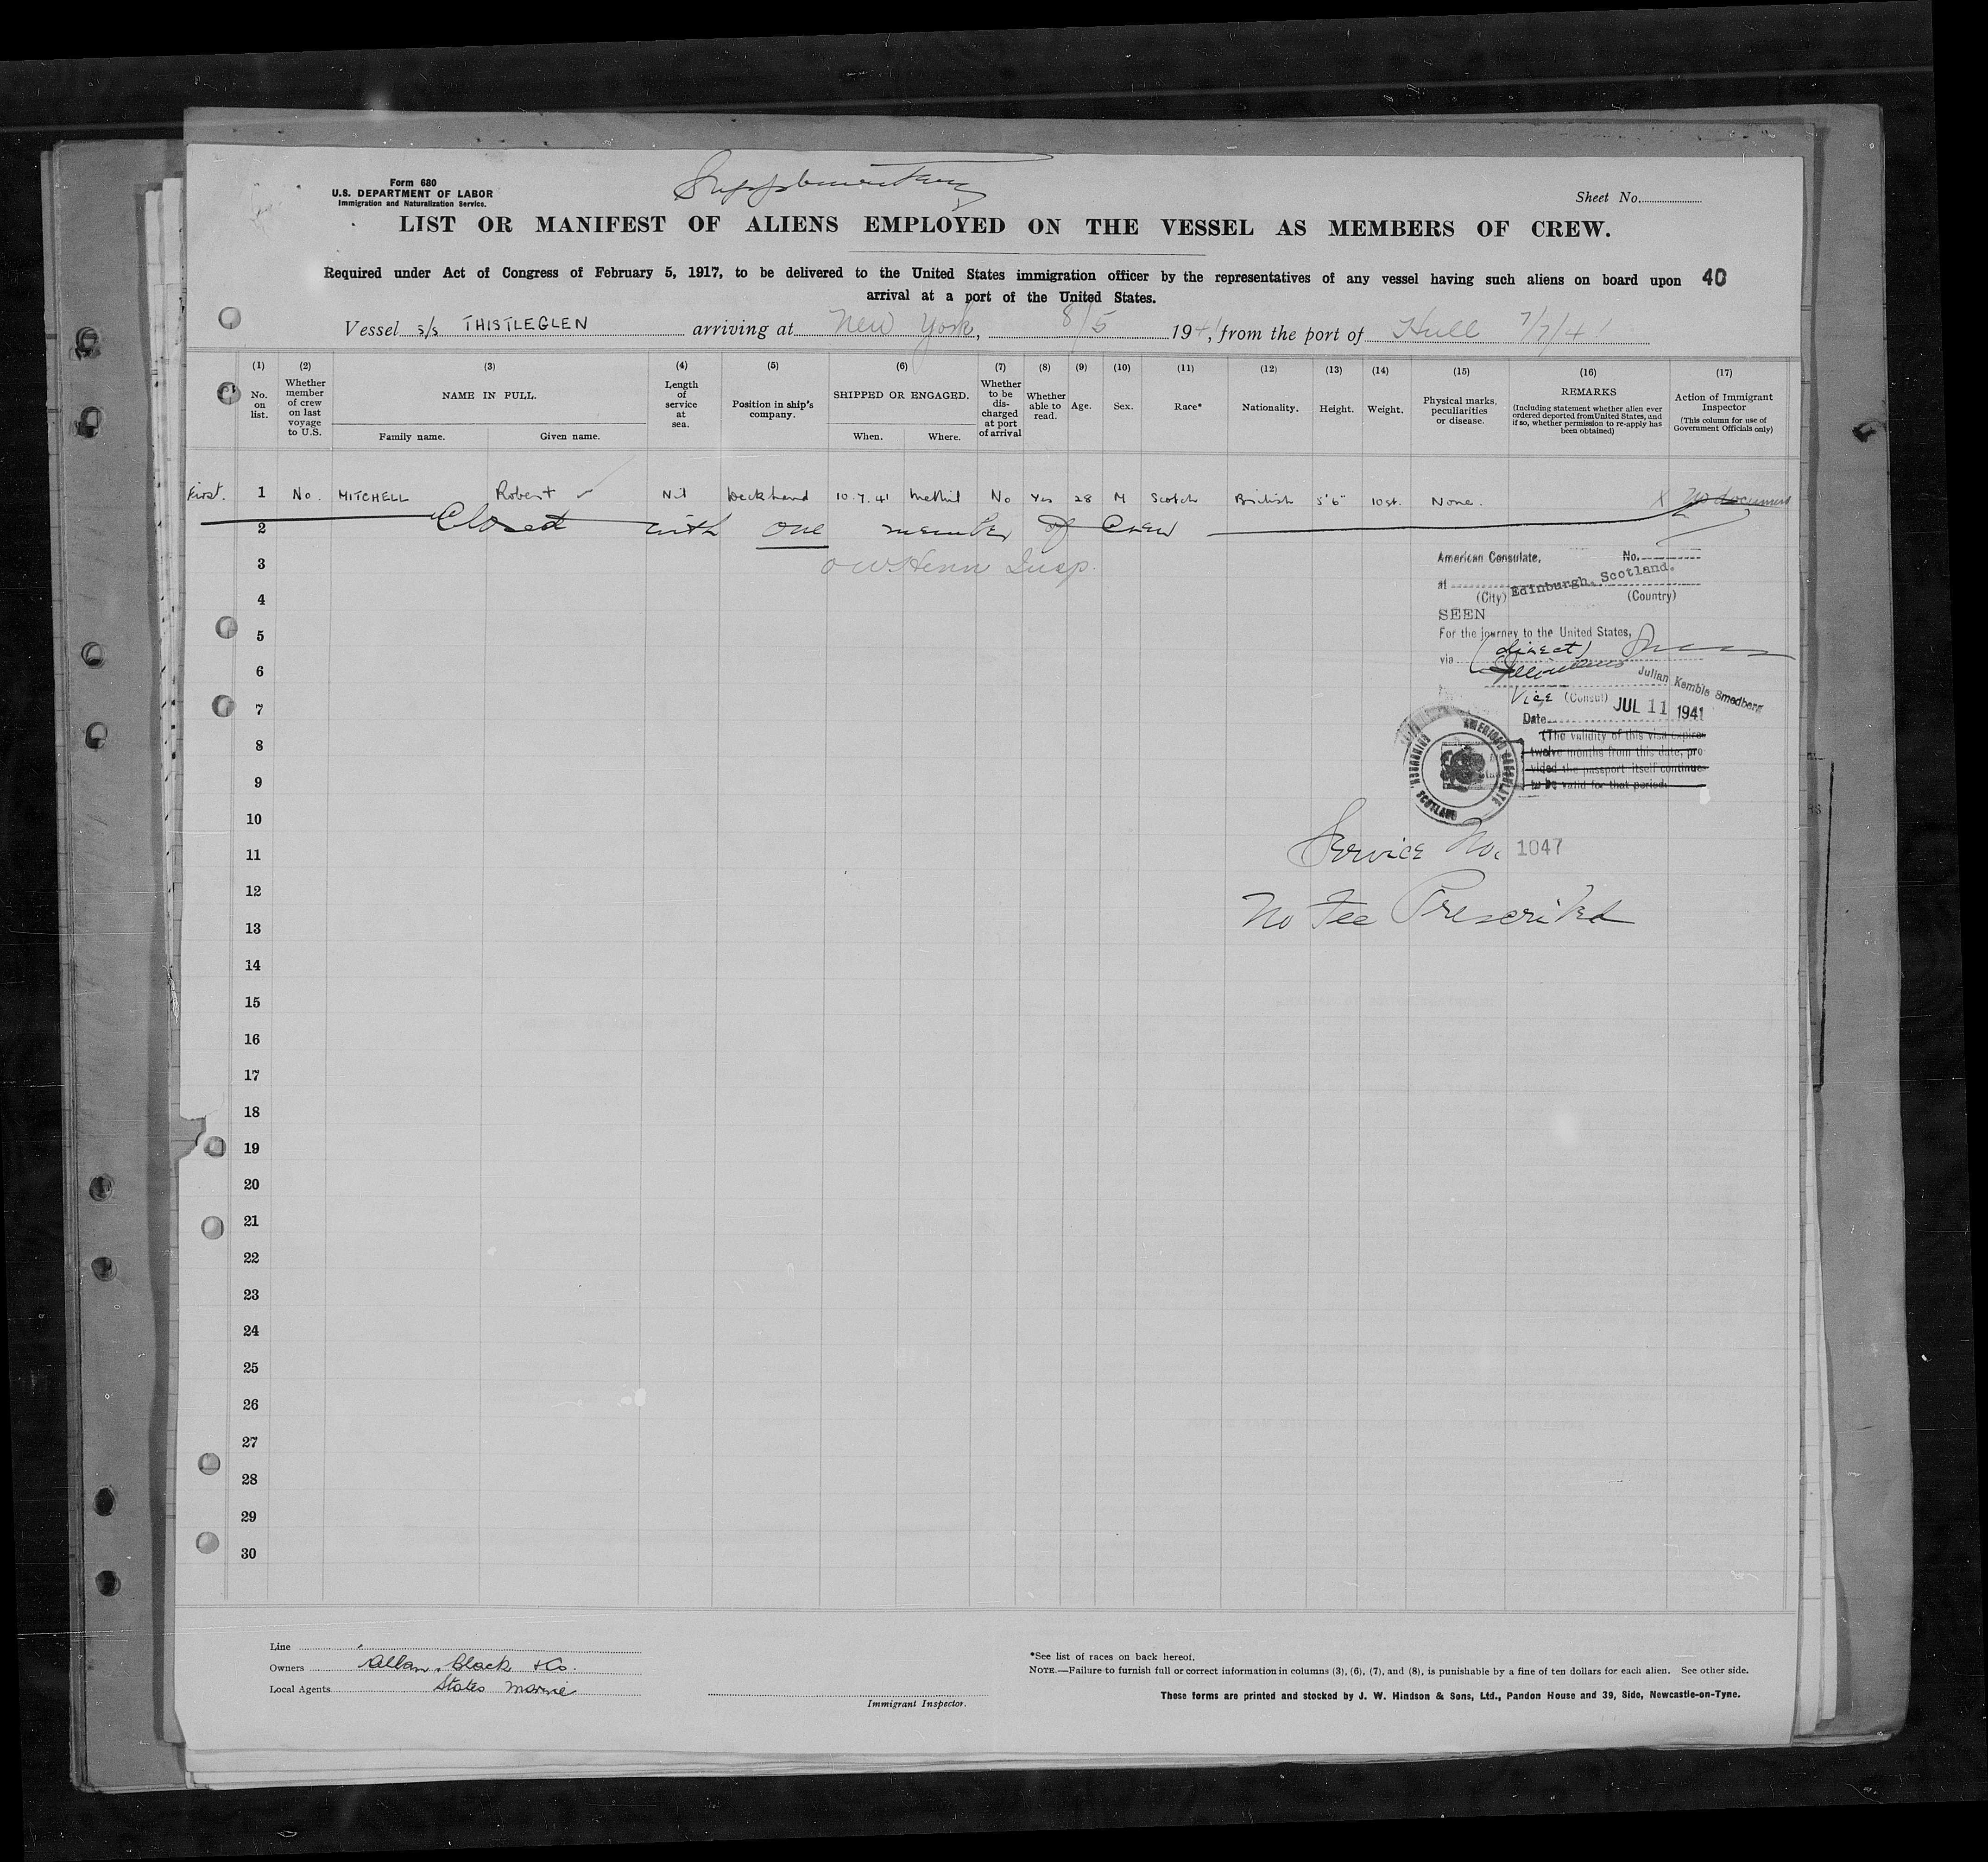 Form 680
U.S. DEPARTMENT OF LABOR
Immigration and Naturalization Service.
Supplementary
Sheet No.
LIST OR MANIFEST OF ALIENS EMPLOYED ON THE VESSEL AS MEMBERS OF CREW.
Required under Act of Congress of February 5, 1917, to be delivered to the United States immigration officer by the representatives of any vessel having such aliens on board upon 40
arrival at a port of the United States.
Vessel s/s THISTLEGLEN arriving at New York, 8/5 1941, from the port of Hull 7/7/41
(1) No. on list.
(2) Whether member of crew on last voyage to U.S.
(3) NAME IN FULL. Family name. Given name.
(4) Length of service at sea.
(5) Position in ship's company.
(6) SHIPPED OR ENGAGED. When. Where.
(7) Whether to be discharged at port of arrival
(8) Whether able to read.
(9) Age.
(10) Sex.
(11) Race*
(12) Nationality.
(13) Height.
(14) Weight.
(15) Physical marks, peculiarities or disease.
(16) REMARKS (Including statement whether alien ever ordered deported from United States, and if so, whether permission to re-apply has been obtained)
(17) Action of Immigrant Inspector (This column for use of Government Officials only)
First. 1 No. MITCHELL Robert Nil Deckhand 10.7.41 Methil No Yes 28 M Scotch British 5'6" 10st. None. X No document
2 Closed with one member of Crew
3
4
5
6
7
8
9
10
11
12
13
14
15
16
17
18
19
20
21
22
23
24
25
26
27
28
29
30
American Consulate, No.
at Edinburgh, Scotland.
(City) (Country)
SEEN
For the journey to the United States,
via (direct)
Julian Kemble Smedberg
Vice (Consul)
Date JUL 11 1941
(The validity of this visa expires
twelve months from this date, pro
vided the passport itself continues
to be valid for that period)
AMERICAN CONSULATE EDINBURGH, SCOTLAND
Service No. 1047
No Fee Prescribed
Line
Owners Allan, Black & Co.
Local Agents States Marine
Immigrant Inspector.
*See list of races on back hereof.
NOTE.—Failure to furnish full or correct information in columns (3), (6), (7), and (8), is punishable by a fine of ten dollars for each alien. See other side.
These forms are printed and stocked by J. W. Hindson & Sons, Ltd., Pandon House and 39, Side, Newcastle-on-Tyne.